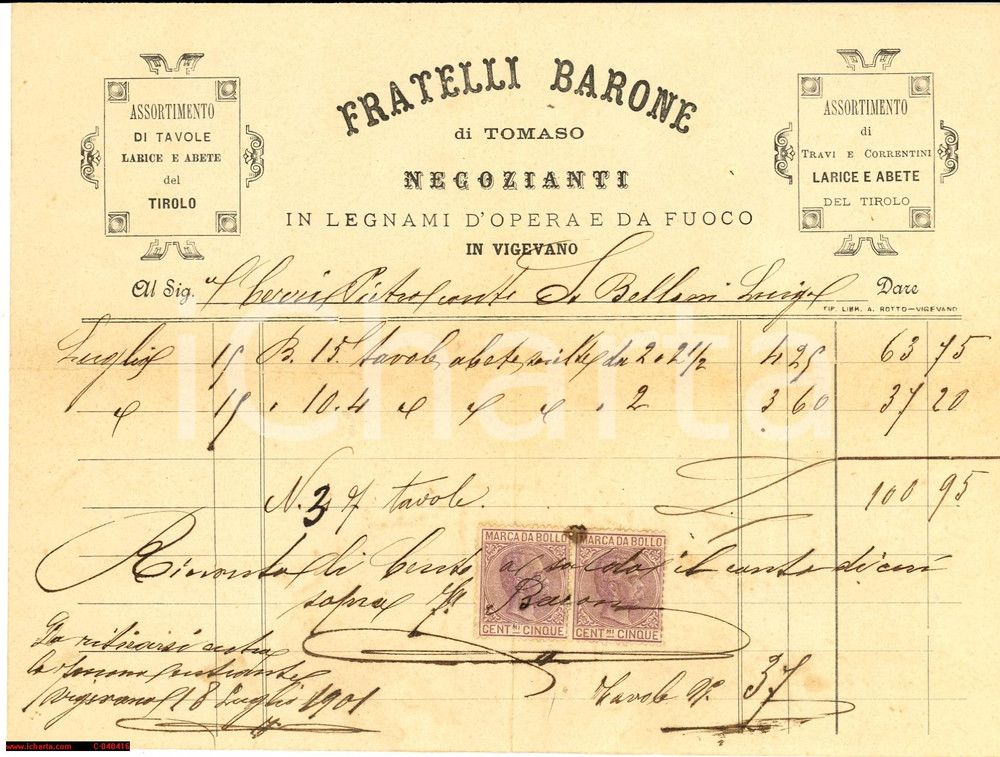 ASSORTIMENTO
DI TAVOLE
LARICE E ABETE
del
TIROLO
FRATELLI BARONE
di TOMASO
NEGOZIANTI
IN LEGNAMI D'OPERA E DA FUOCO
IN VIGEVANO
ASSORTIMENTO
di
TRAVI E CORRENTINI
LARICE E ABETE
DEL TIROLO
Al Sig. Pietro conto Bellani Luigi Dare
TIP. LIBR. A. ROTTO—VIGEVANO
Luglio 15 B. 15 tavole abete scielte da 2 a 2 1/2 4 25 63 75
" 15 " 10.4 " " " " 2 3 60 37 20
100 95
N. 37 tavole
MARCA DA BOLLO MARCA DA BOLLO
Ricevuto di Cento a saldo il conto di cui
sopra Barone
CENT.MI CINQUE CENT.MI CINQUE
Da ritirarsi entro
la entrante
Vigevano 18 Luglio 1901
Tavole N. 37
iCharta
www.icharta.com C-040416